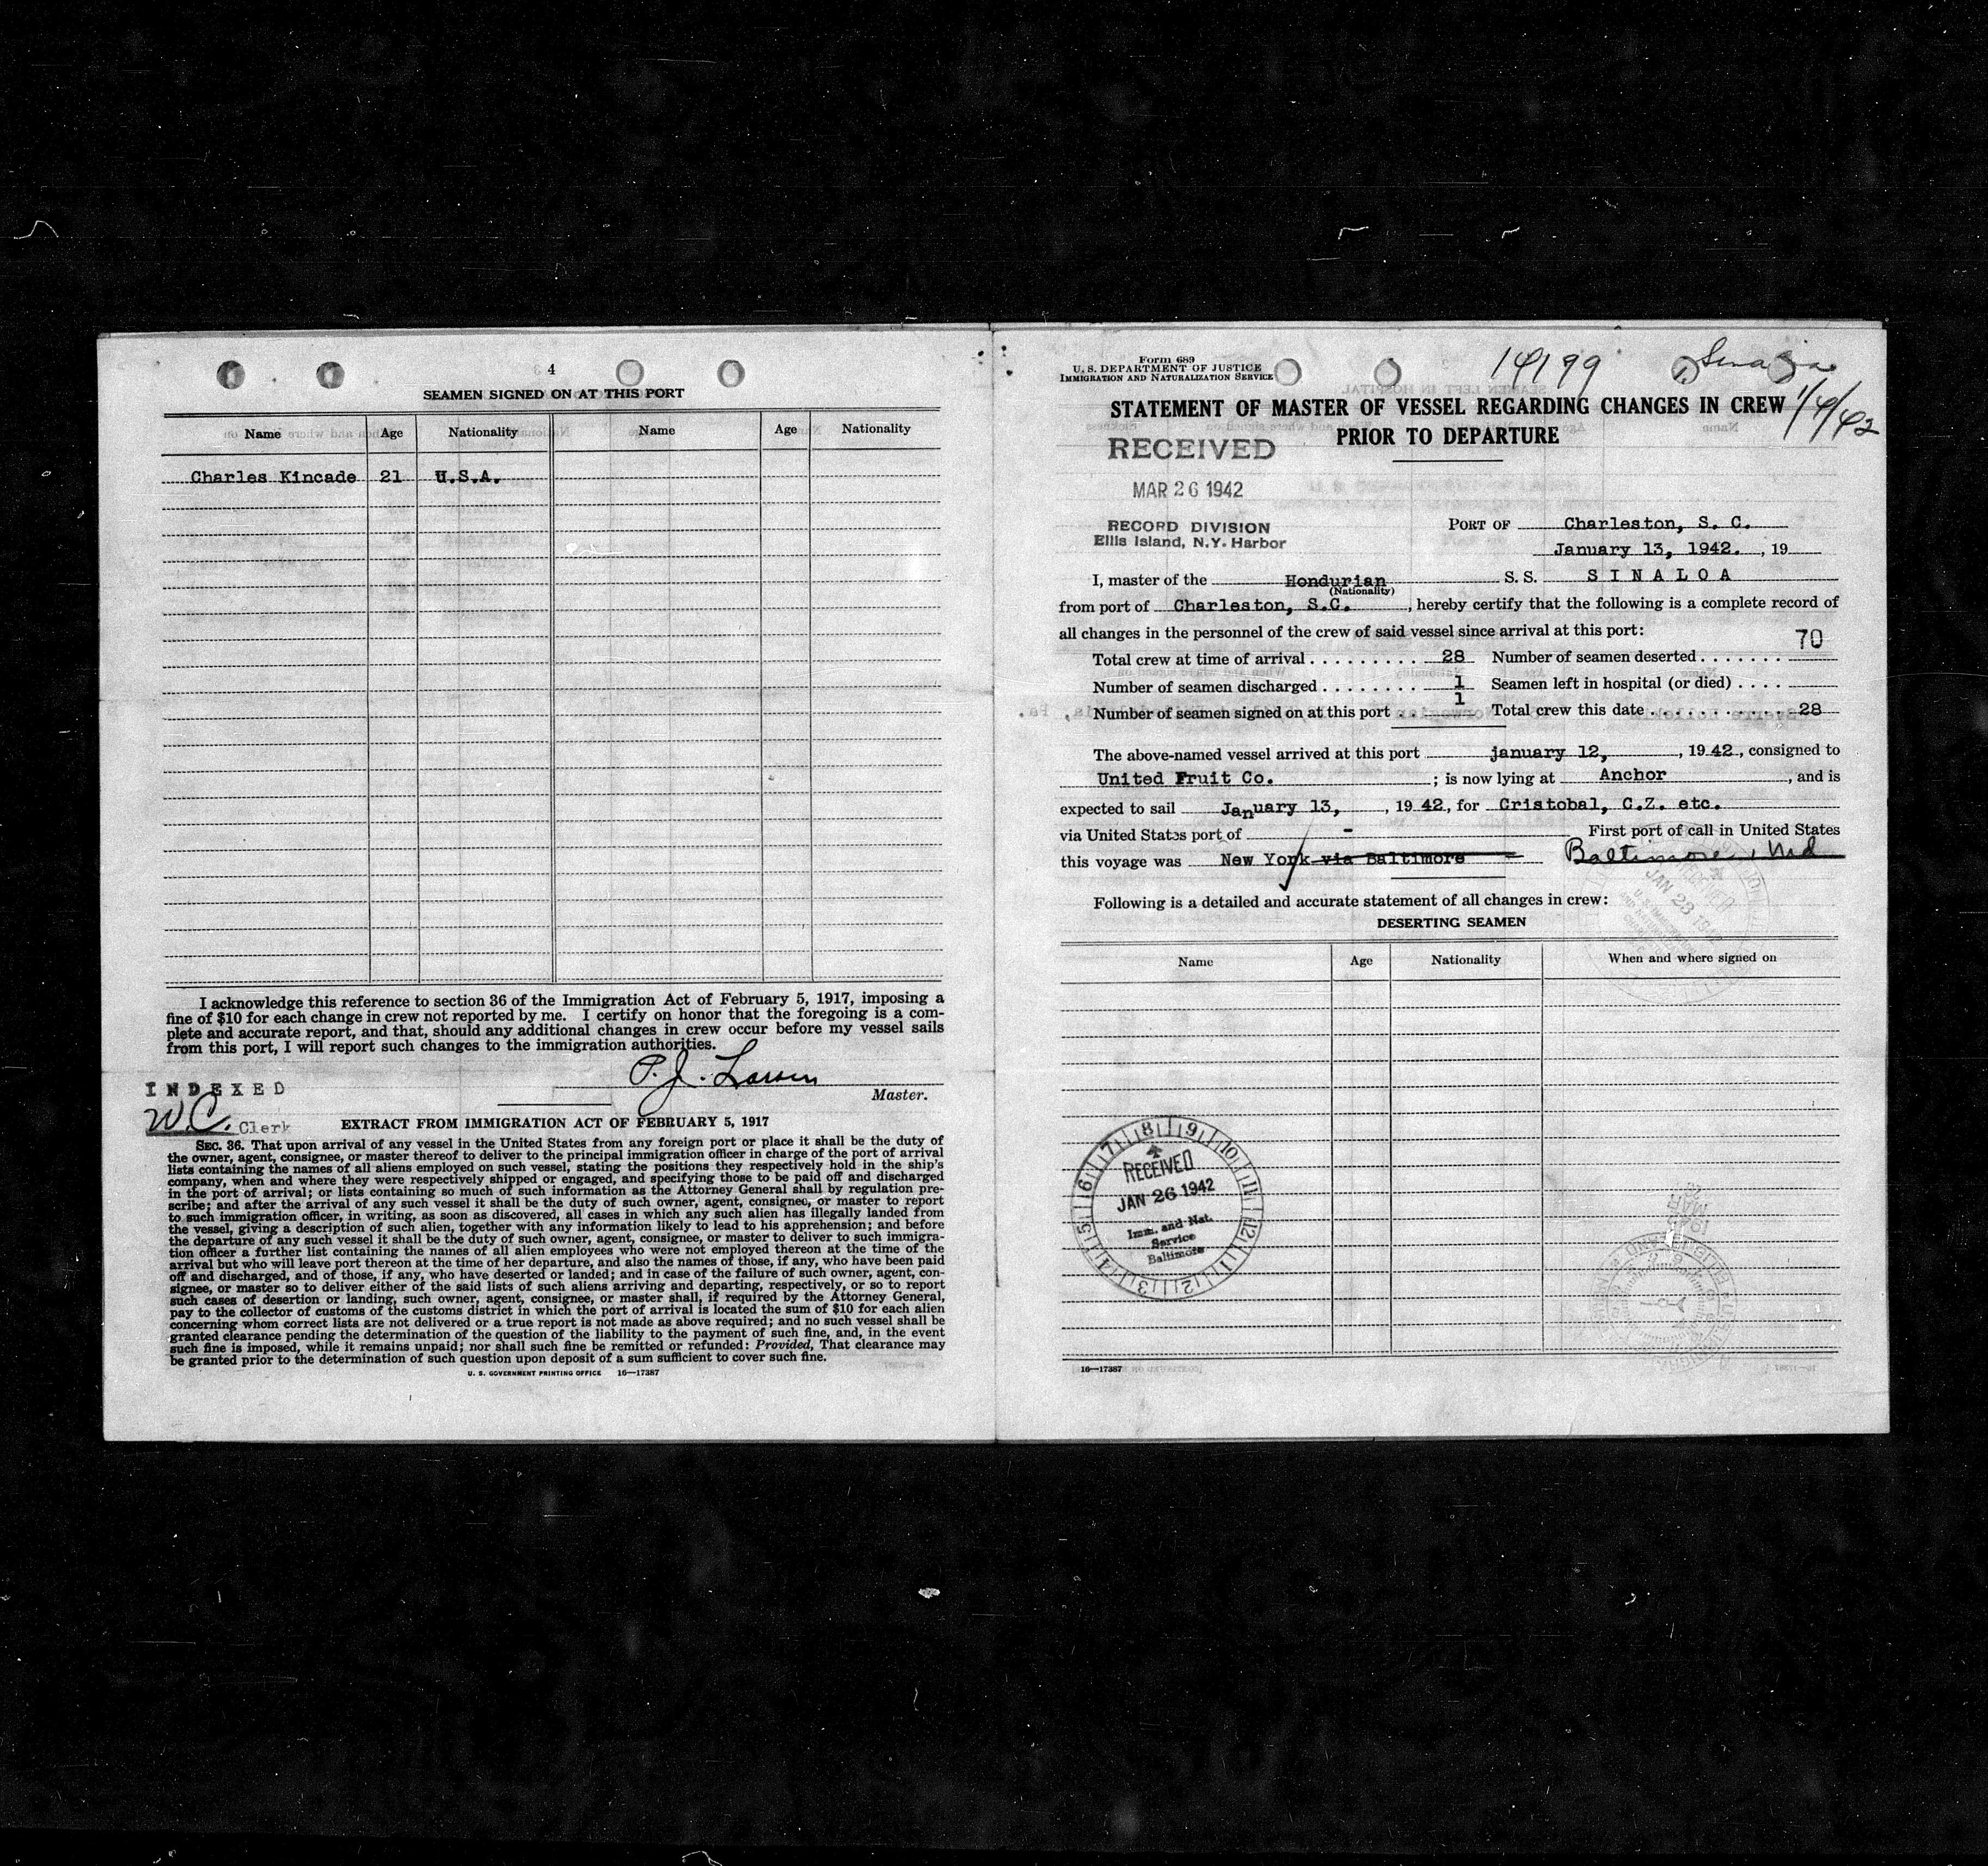 4
SEAMEN SIGNED ON AT THIS PORT
Name Age Nationality Name Age Nationality
Charles Kincade 21 U.S.A.
I acknowledge this reference to section 36 of the Immigration Act of February 5, 1917, imposing a
fine of $10 for each change in crew not reported by me. I certify on honor that the foregoing is a com-
plete and accurate report, and that, should any additional changes in crew occur before my vessel sails
from this port, I will report such changes to the immigration authorities.
P.J. Larsen
Master.
INDEXED
W.C. Clerk
EXTRACT FROM IMMIGRATION ACT OF FEBRUARY 5, 1917
SEC. 36. That upon arrival of any vessel in the United States from any foreign port or place it shall be the duty of
the owner, agent, consignee, or master thereof to deliver to the principal immigration officer in charge of the port of arrival
lists containing the names of all aliens employed on such vessel, stating the positions they respectively hold in the ship's
company, when and where they were respectively shipped or engaged, and specifying those to be paid off and discharged
in the port of arrival; or lists containing so much of such information as the Attorney General shall by regulation pre-
scribe; and after the arrival of any such vessel it shall be the duty of such owner, agent, consignee, or master to report
to such immigration officer, in writing, as soon as discovered, all cases in which any such alien has illegally landed from
the vessel, giving a description of such alien, together with any information likely to lead to his apprehension; and before
the departure of any such vessel it shall be the duty of such owner, agent, consignee, or master to deliver to such immigra-
tion officer a further list containing the names of all alien employees who were not employed thereon at the time of the
arrival but who will leave port thereon at the time of her departure, and also the names of those, if any, who have been paid
off and discharged, and of those, if any, who have deserted or landed; and in case of the failure of such owner, agent, con-
signee, or master so to deliver either of the said lists of such aliens arriving and departing, respectively, or so to report
such cases of desertion or landing, such owner, agent, consignee, or master shall, if required by the Attorney General,
pay to the collector of customs of the customs district in which the port of arrival is located the sum of $10 for each alien
concerning whom correct lists are not delivered or a true report is not made as above required; and no such vessel shall be
granted clearance pending the determination of the question of the liability to the payment of such fine, and, in the event
such fine is imposed, while it remains unpaid; nor shall such fine be remitted or refunded: Provided, That clearance may
be granted prior to the determination of such question upon deposit of a sum sufficient to cover such fine.
U. S. GOVERNMENT PRINTING OFFICE 16—17387
Form 689
U. S. DEPARTMENT OF JUSTICE
IMMIGRATION AND NATURALIZATION SERVICE
14199
Sinaloa
1/4/42
STATEMENT OF MASTER OF VESSEL REGARDING CHANGES IN CREW
PRIOR TO DEPARTURE
RECEIVED
MAR 26 1942
RECORD DIVISION
Ellis Island, N.Y. Harbor
PORT OF Charleston, S. C.
January 13, 1942. , 19
I, master of the Hondurian S. S. SINALOA
(Nationality)
from port of Charleston, S.C. , hereby certify that the following is a complete record of
all changes in the personnel of the crew of said vessel since arrival at this port:
70
Total crew at time of arrival . . . . . . . . . . 28 Number of seamen deserted . . . . . . .
Number of seamen discharged . . . . . . . . 1 Seamen left in hospital (or died) . . . .
Number of seamen signed on at this port . . 1 Total crew this date . . . . . . . . . . . . 28
The above-named vessel arrived at this port january 12, , 1942, consigned to
United Fruit Co. ; is now lying at Anchor , and is
expected to sail January 13, , 1942, for Cristobal, C.Z. etc.
via United States port of - First port of call in United States
this voyage was New York via Baltimore Baltimore, Md
Following is a detailed and accurate statement of all changes in crew:
DESERTING SEAMEN
Name Age Nationality When and where signed on
RECEIVED
JAN 26 1942
Imm. and Nat.
Service
Baltimore
16—17387